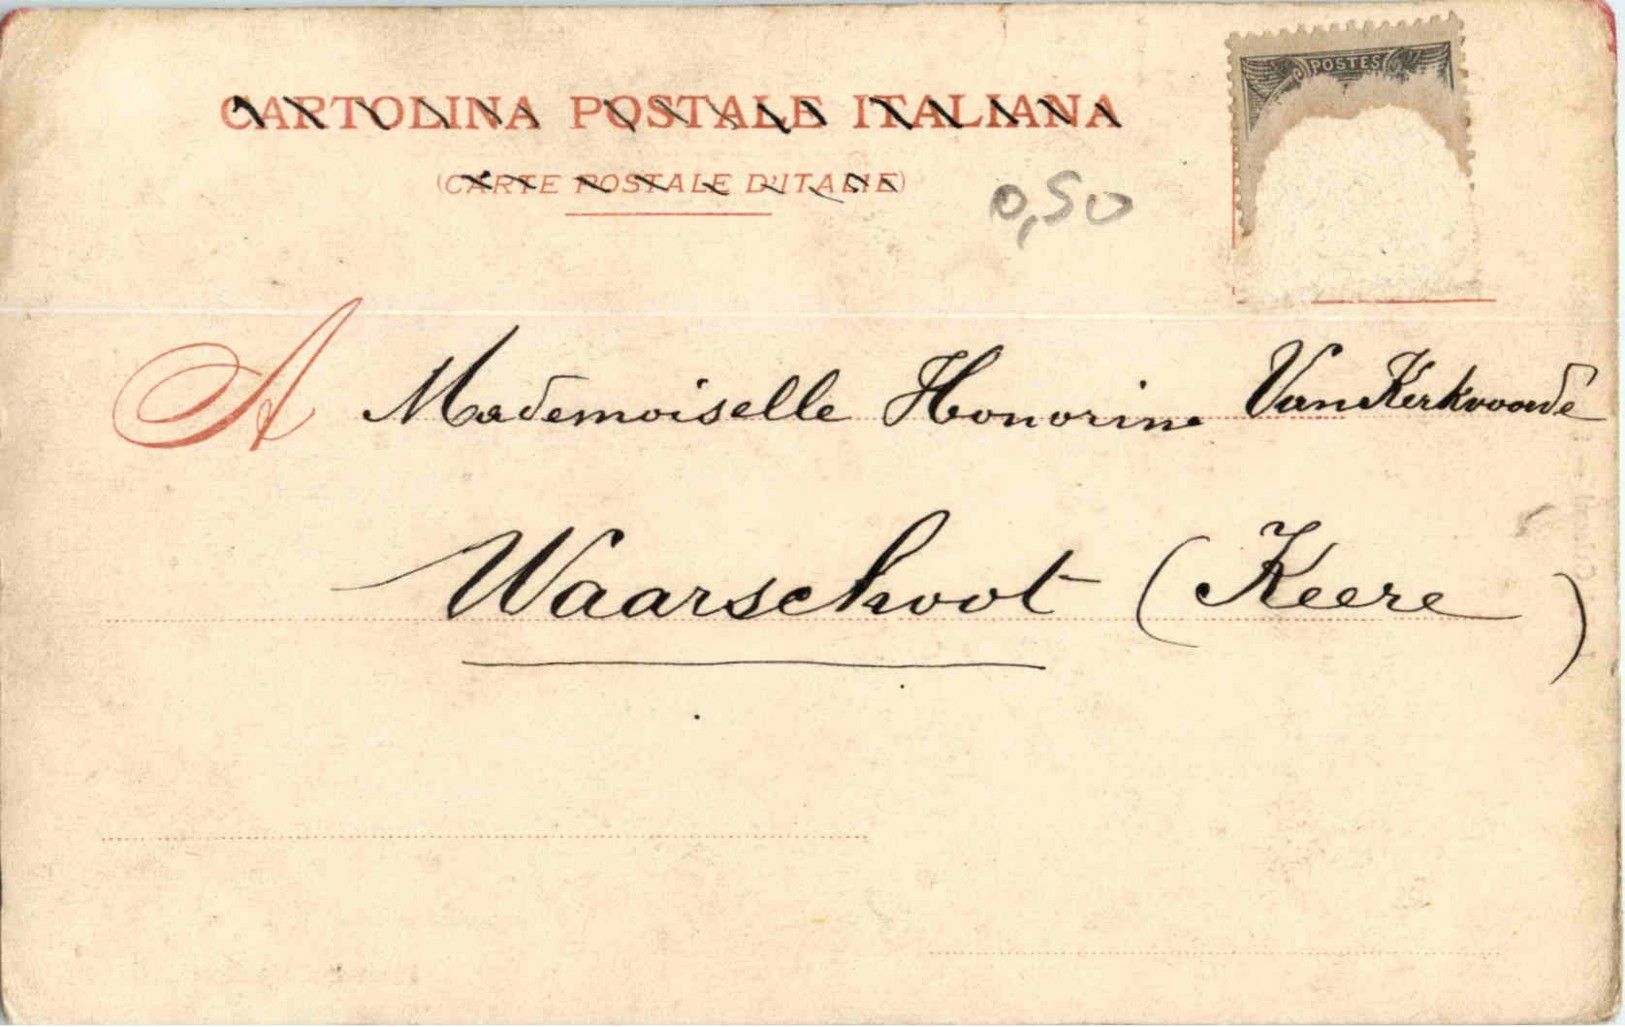 CARTOLINA POSTALE ITALIANA
(CARTE POSTALE D'ITALIE)
POSTES
0,50
A Mademoiselle Honorine Van Kerkvoorde
Waarschoot (Keere)